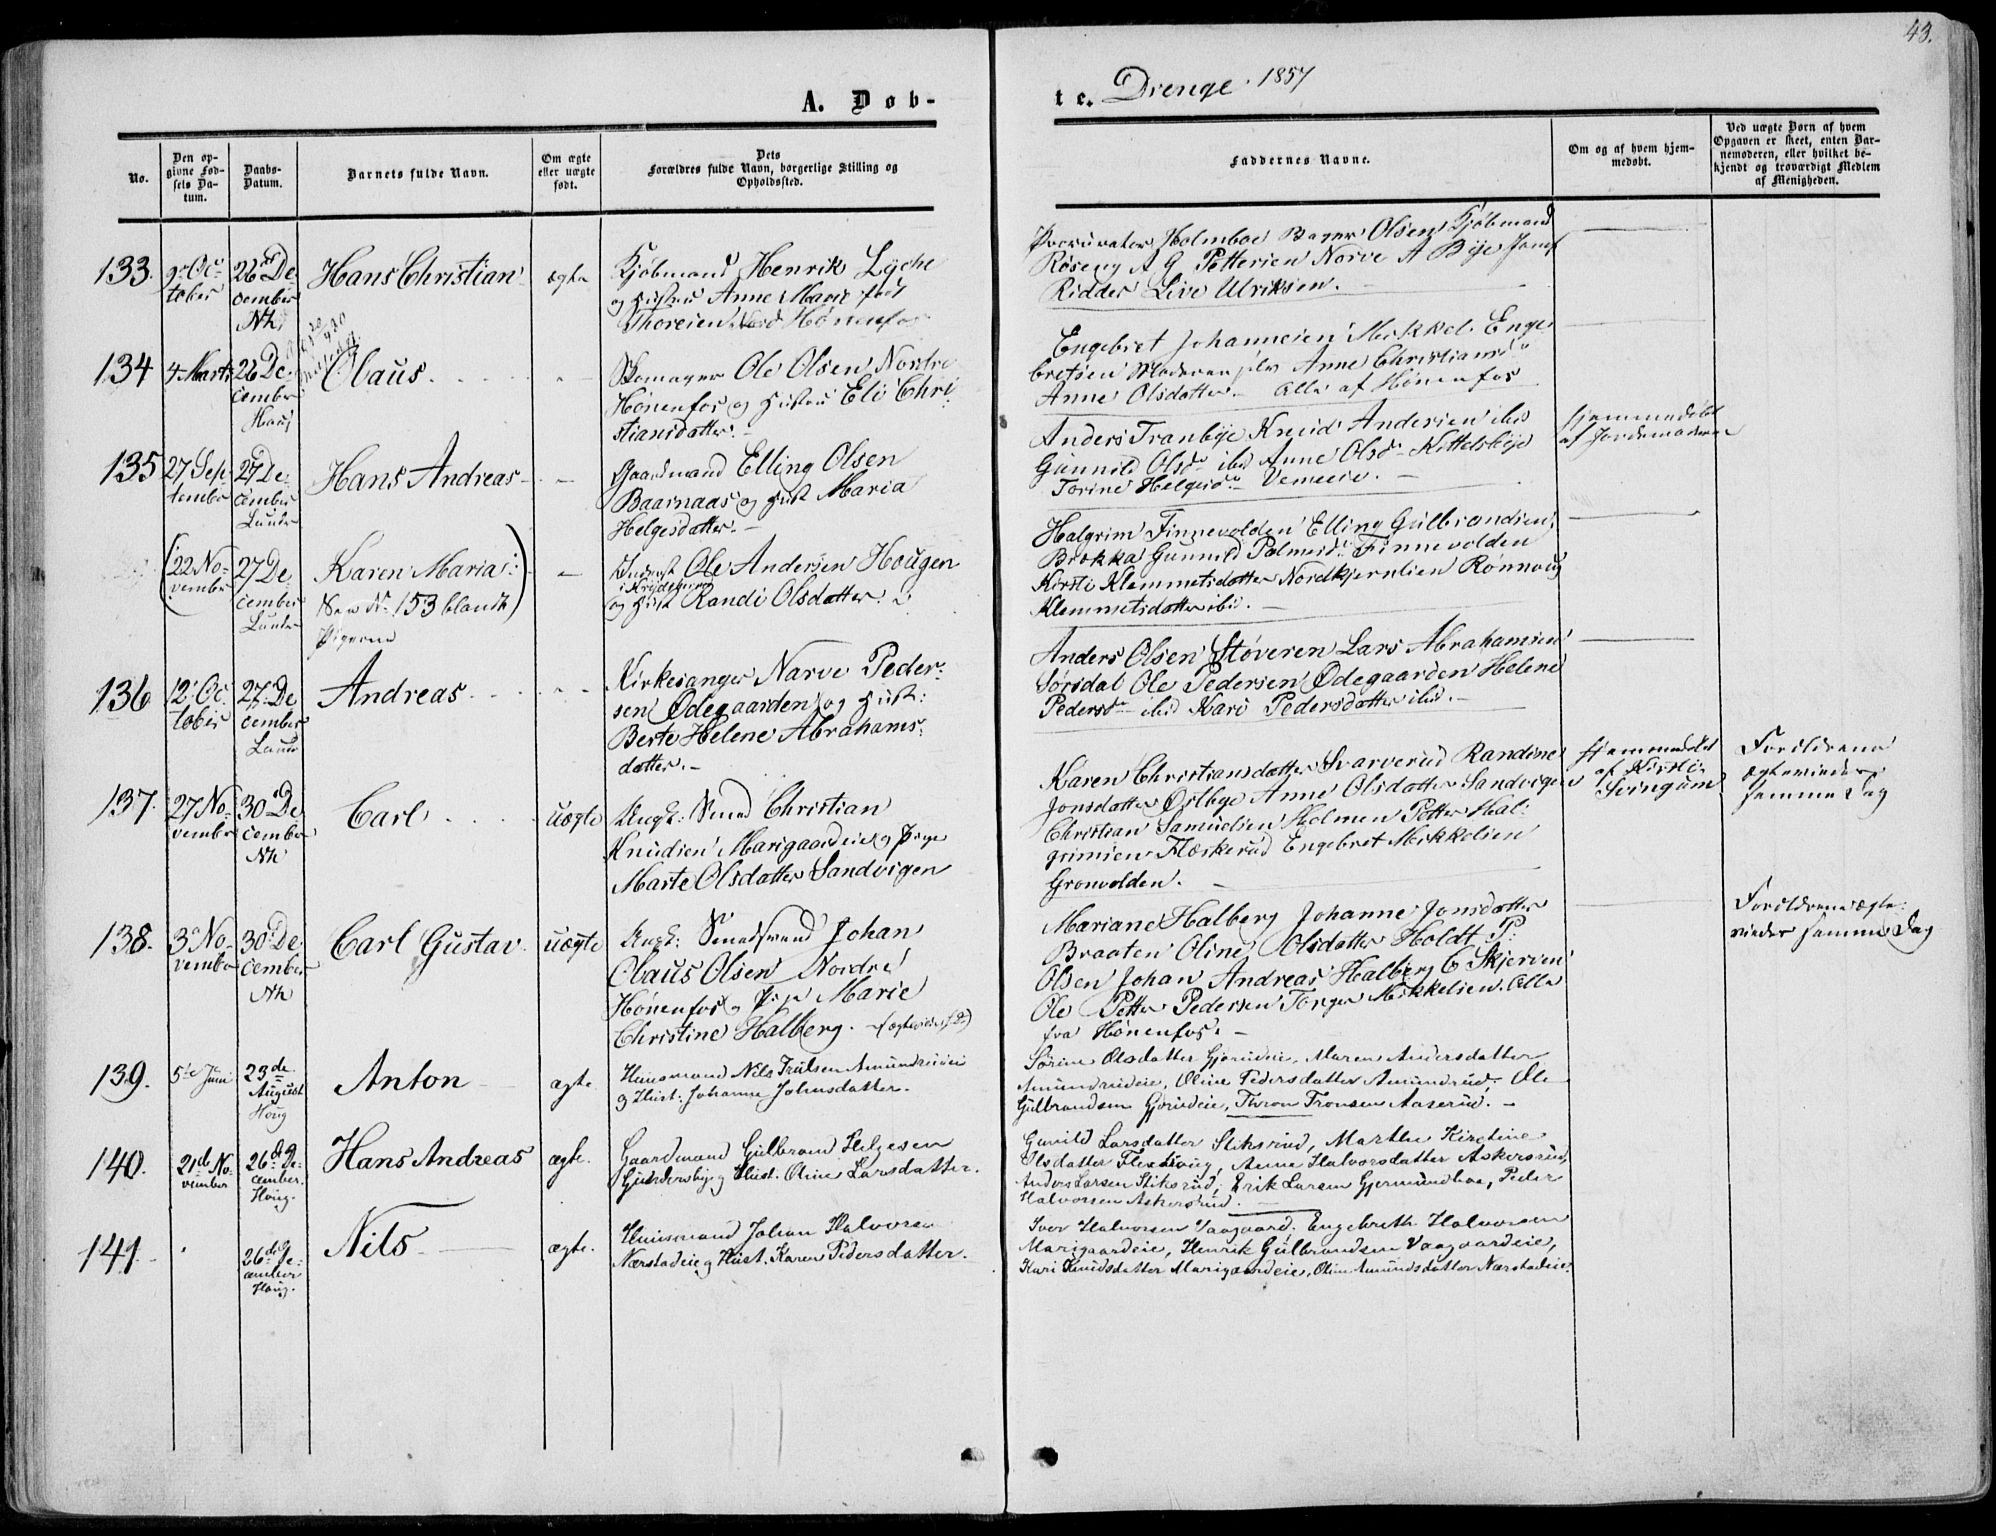 43.
A. Døb-
te. Drenge. 1857
No.
Den op-
givne Fød-
sels Da-
tum.
Daabs-
Datum.
Barnets fulde Navn.
Om ægte
eller uægte
født.
Dets
Forældres fulde Navn, borgerlige Stilling og
Opholdssted.
Faddernes Navne.
Om og af hvem hjem-
medøbt.
Ved uægte Børn af hvem
Opgaven er skeet, enten Bar-
nemoderen, eller hvilket be-
kjendt og troværdigt Medlem
af Menigheden.
133.
9. Oc-
tober
26 De
cember
Nh
Hans Christian
ægte
Kjøbmand Henrik Lyche
og Hustru Anne Marie født
Thoresen Nord Hønenfos
Procurator Holmboe Bager Olsen Kjøbmand
Røseng A G Pettersen Narve A Bye Josef
Ridder Live Ulriksen.
134
4 Marts
26 De
cember
Houg
Olaus.
Skomager Ole Olsen Nordre
Hønenfos og Hustru Eli Chri
stiansdatter.
Engebret Johannesen Mikkel Enge
bretsen Moderen selv Anne Christiansd
Anne Olsdatter. Alle af Hønenfos
135
27 Sep
tember
27 De
cember
Lunder
Hans Andreas
Gaardmand Elling Olsen
Baarnaas og Hust Maria
Helgesdatter.
Anders Tranbye Knud Andersen ibid
Gunnild Olsd ibid Anne Olsd Kittelsbye
Torine Helgesd Vemeeie.
hjemmedøbt
af Jordemoderen
(22 No-
vember
27 De
cember
Lunder
Karen Maria:)
See No 153 blandt
Pigerne
Inderst Ole Andersen Hougen
og Hust Randi Olsdatter.
Halgrim Finnevolden Elling Gulbrandsen
Brekka Gunnild Palmesd Finnevolden
Kirsti Klemmetsdatter Nordkjernlien Ronnoug
Klemmetsdatter ibid.
136
12 Oc
tober
27 De
cember
Lunder
Andreas
Kirkesanger Narve Peder-
sen Ødegaarden og Hust:
Berte Helene Abrahams-
datter.
Anders Olsen Støveren Lars Abrahamsen
Sørsdal Ole Pedersen Ødegaarden Helene
Pedersd ibid Kari Pedersdatter ibid.
137.
27 No
vember
30 De
cember
Nh
Carl
uægte
Ungk: Smed Christian
Knudsen Marigaardeie og Pige
Marte Olsdatter Sandvigen
Karen Christiansdatter Svarverud Randine
Jonsdatter Østbye Anne Olsdatter Sandvigen
Christian Samuelsen Holmen Petter Hal-
grimsen Flæskerud Engebret Mikkelsen
Gronvolden.
hjemmedøbt
af Kirsti
Svingum
Forældrene
ægteviede
samme Dag
138.
3 No-
vember
30 De
cember
Nh
Carl Gustav
uægte
Ungk: Smedsvend Johan
Olaus Olsen Nordre
Hønenfos og Pige Marie
Christine Halberg. (ægteviet s.D)
Mariane Halberg Johanne Jonsdatter
Braaten Oline Olsdatter Holdt P:
Olsen Johan Andreas Halberg C Skjerven
Ole Petter Pedersen Torger Mikkelsen. Alle
fra Hønenfos.
Forældrene ægte-
viede samme Dag
139.
5te Juni
23de
August
Houg
Anton
ægte
Huusmand Nils Trulsen Amundrudeie
og Hust: Johanne Johnsdatter.
Sørine Olsdatter Gjørudeie, Maren Andersdatter
Amundrudeie, Oline Pedersdatter Amundrud, Ole
Gulbrandsen Gjørudeie, Thron Tronsen Aaserud.
140.
21de No
vember
26de De-
cember.
Houg.
Hans Andreas
ægte.
Gaardmand Gulbrand Helgesen
Gunderby og Hust. Oline Larsdatter.
Gunild Larsdatter Stiksrud, Marthe Kirstine
Olsdatter Fleskoug, Anne Halvorsdatter Askersrud,
Anders Larsen Stiksrud, Erik Larsen Gjermundboe, Peder
Halvorsen Askersrud.
141.
26de De-
cember
Houg.
Nils
ægte.
Huusmand Johan Halvorsen
Nærstadeie og Hust. Karen Pedersdatter.
Iver Halvorsen Vaagaard, Engebreth Halvorsen
Marigaardeie, Henrik Gulbrandsen Vaagaardeie,
Kari Knudsdatter Marigaardeie, Oline Amundsdatter Nærstadeie.